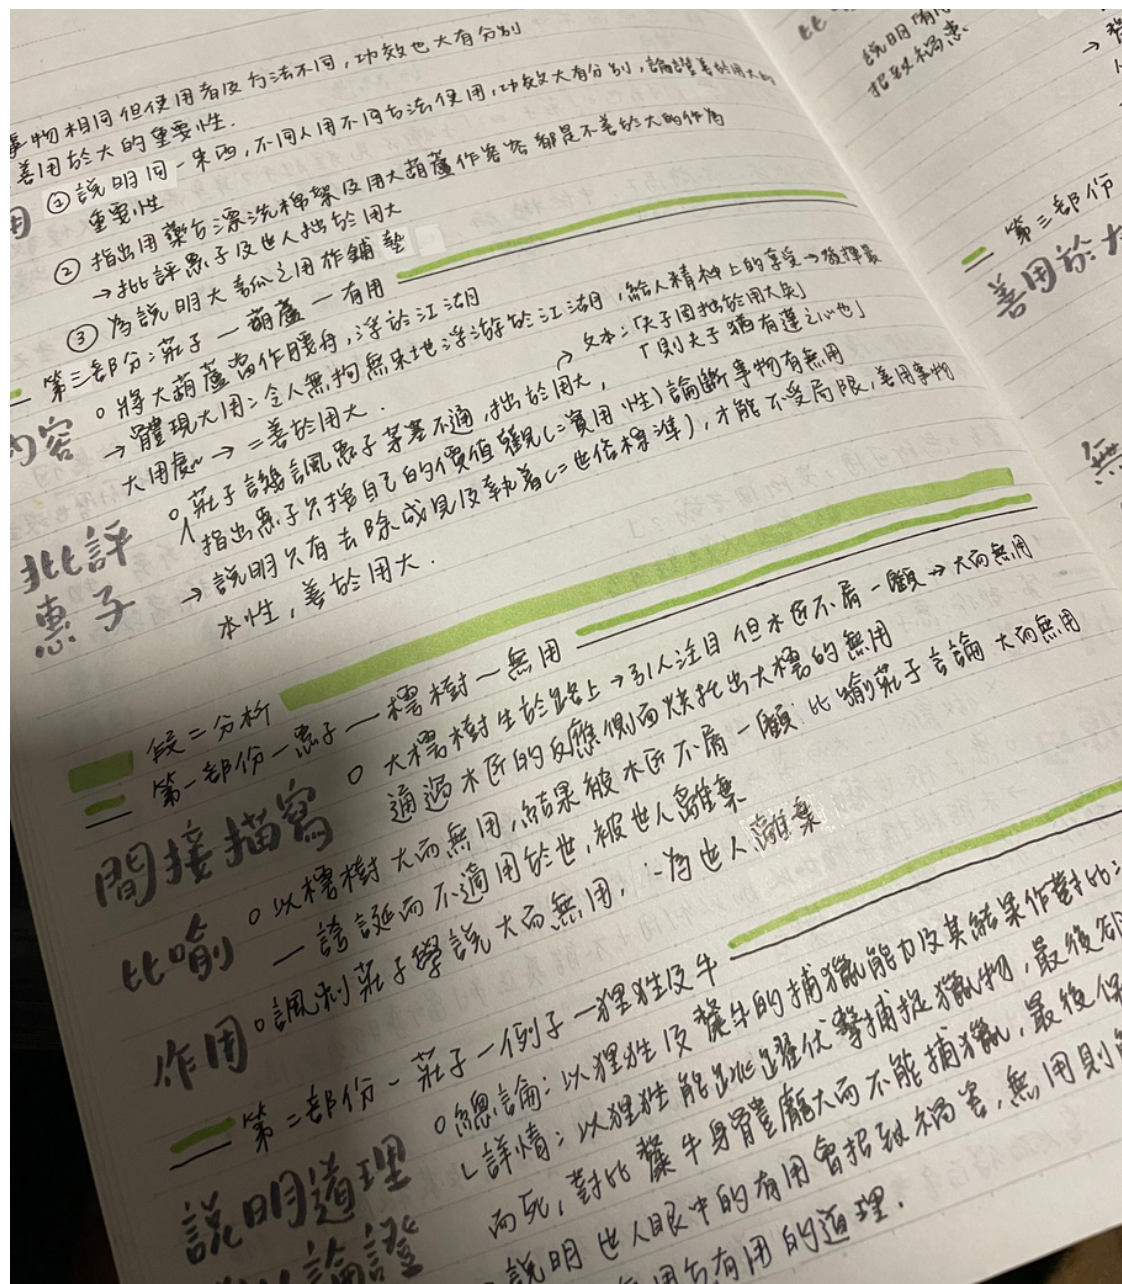 事物相同但使用者及方法不同，功效也大有分別
善用於大的重要性．
用
① 說明同一東西，不同人用不同方法使用，功效大有分別，論證善於用大的
重要性
② 指出用藥方漂洗棉絮及用大葫蘆作容器都是不善於大的作為
→批評惠子及世人拙於用大
③ 為說明大瓠瓜之用作鋪墊
第三部分：莊子一葫蘆一有用
內容
○ 將大葫蘆當作腰舟，浮於江湖
→體現大用：令人無拘無束地浮游於江湖，給人精神上的享受→發揮最
大用處 → =善於用大．
批評
惠子
○ 莊子譏諷惠子茅塞不通，拙於用大，
→ 文本：「夫子固拙於用大矣」
「則夫子猶有蓬之心也」
指出惠子只憑自己的價值觀(=實用性)論斷事物有無用
→ 說明只有去除成見及執着(=世俗標準)，才能不受局限，善用事物
本性，善於用大．
段二分析
第一部份一惠子一樗樹一無用
間接描寫
○ 大樗樹生於路上→引人注目 但木匠不屑一顧→大而無用
通過木匠的反應側面烘托出大樗的無用
比喻
○ 以樗樹大而無用，結果被木匠不屑一顧：比喻莊子言論大而無用
一誇誕而不適用於世，被世人離棄
作用
○諷刺莊子學說大而無用，∴為世人離棄
第二部份一莊子一例子一狸狌及牛
說明道理
論證
○總論：以狸狌及犛牛的捕獵能力及其結果作對比：
∟詳情：以狸狌能跳躍伏擊捕捉獵物，最後卻
而死，對比犛牛身體龐大而不能捕獵，最後保
說明世人眼中的有用會招致禍害，無用則
用有用的道理．
說明有
招致禍患
→
第三部份
善用於大
無